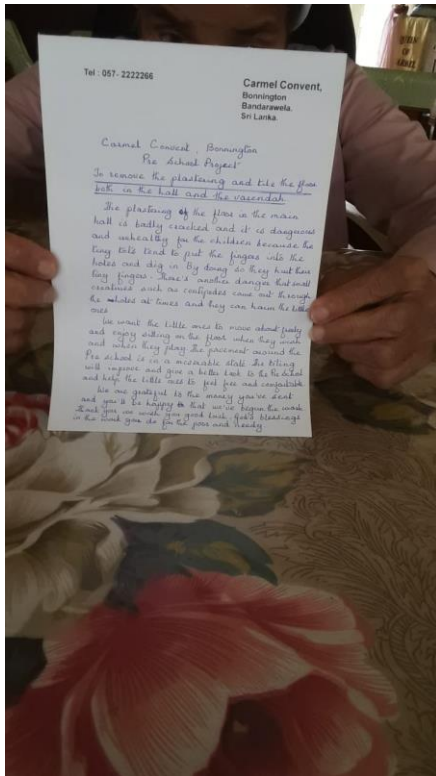 Tel : 057- 2222266
Carmel Convent,
Bonnington
Bandarawela.
Sri Lanka.
Carmel Convent, Bonnington
Pre School Project
To remove the plastering and tile the floor
both in the hall and the varendah
The plastering of the floor in the main
hall is badly cracked and it is dangerous
and unhealthy for the children because the
tiny tots tend to put the fingers into the
holes and dig in By doing so they hurt their
tiny fingers. There's another danger that small
creatures such as centipedes came out through
the holes at times and they can harm the little
ones
We want the little ones to move about freely
and enjoy sitting on the floor when they work
and when they play the pavement around the
Pre school is in a miserable state the tiling
will improve and give a better look to the Pre school
and help the little ones to feel free and comfortable
We are grateful to the money you've sent
and you'll be happy that we've begun the work
Thank you we wish you good luck, God's blessings
in the work you do for the poor and needy
OF